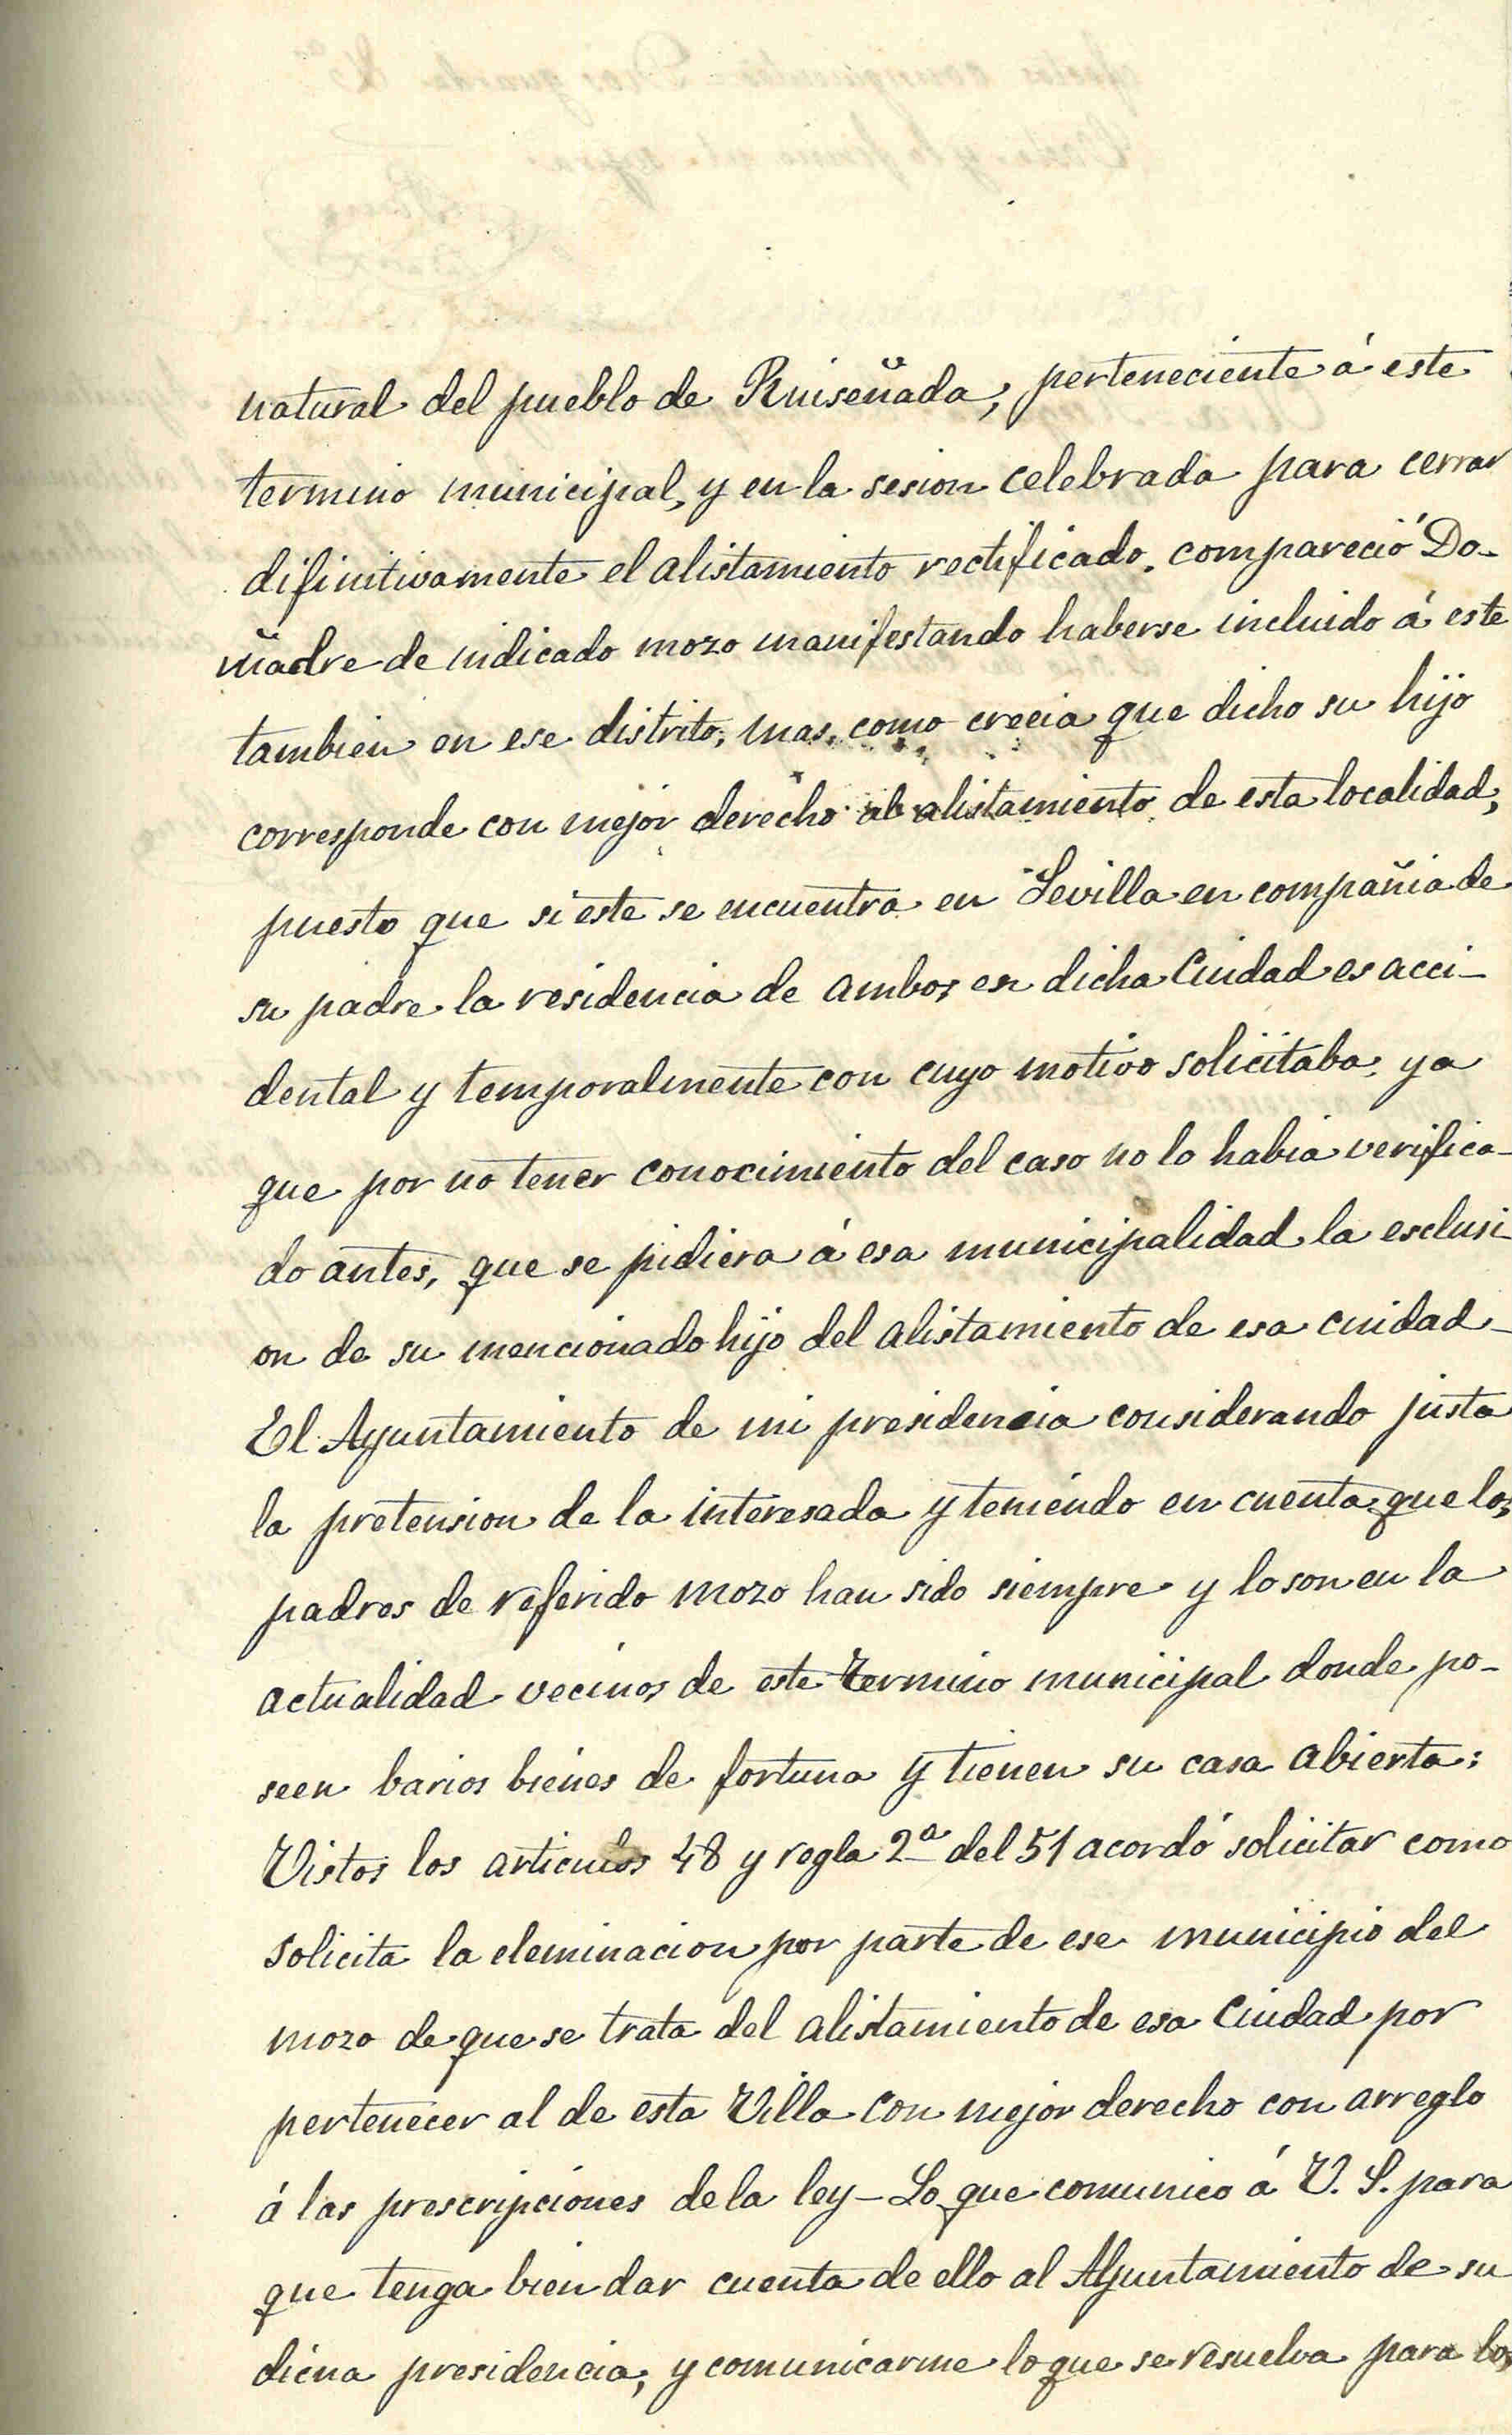 natural del pueblo de Ruiseñada, perteneciente á este
termino municipal, y en la sesion celebrada para cerrar
difinitivamente el alistamiento rectificado, compareció Do-
ña madre de indicado mozo manifestando haberse incluido á este
tambien en ese distrito, mas, como crecia que dicho su hijo
corresponde con mejor derecho al alistamiento de esta localidad,
puesto que si este se encuentra en Sevilla en compañia de
su padre la residencia de ambos en dicha Ciudad es acci-
dental y temporalmente con cuyo motivo solicitaba, ya
que por no tener conocimiento del caso no lo habia verifica-
do antes, que se pidiera á esa municipalidad la esclusi-
on de su mencionado hijo del alistamiento de esa ciudad-
El Ayuntamiento de mi presidencia considerando justa
la pretension de la interesada y teniendo en cuenta que los
padres de referido mozo han sido siempre y lo son en la
actualidad vecinos de este termino municipal donde po-
seen barios bienes de fortuna y tienen su casa abierta:
Vistos los articulos 48 y regla 2ª del 51 acordó solicitar como
solicita la eleminacion por parte de ese municipio del
mozo de que se trata del alistamiento de esa Ciudad por
pertenecer al de esta Villa con mejor derecho con arreglo
á las prescripciones de la ley - Lo que comunico á V. S. para
que tenga bien dar cuenta de ello al Ayuntamiento de su
dicna presidencia, y comunicarme lo que se resuelva para los